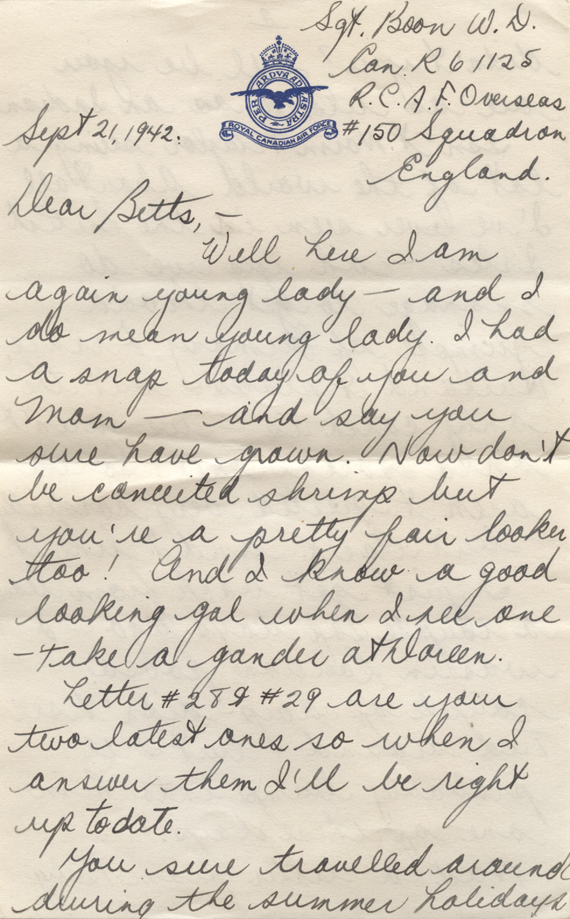 Sgt. Boon W. D.
Can. R 61125
R.C.A.F. Overseas
Sept 21, 1942.
PER ARDUA AD ASTRA
ROYAL CANADIAN AIR FORCE
#150 Squadron
England.
Dear Betts, –
Well here I am
again young lady — and I
do mean young lady. I had
a snap today of you and
Mom — and say you
sure have grown. Now don't
be conceited shrimp but
you're a pretty fair looker
too! And I know a good
looking gal when I see one
– take a gander at Doreen.
Letter #28 & #29 are your
two latest ones so when I
answer them I'll be right
up to date.
You sure travelled around
during the summer holidays